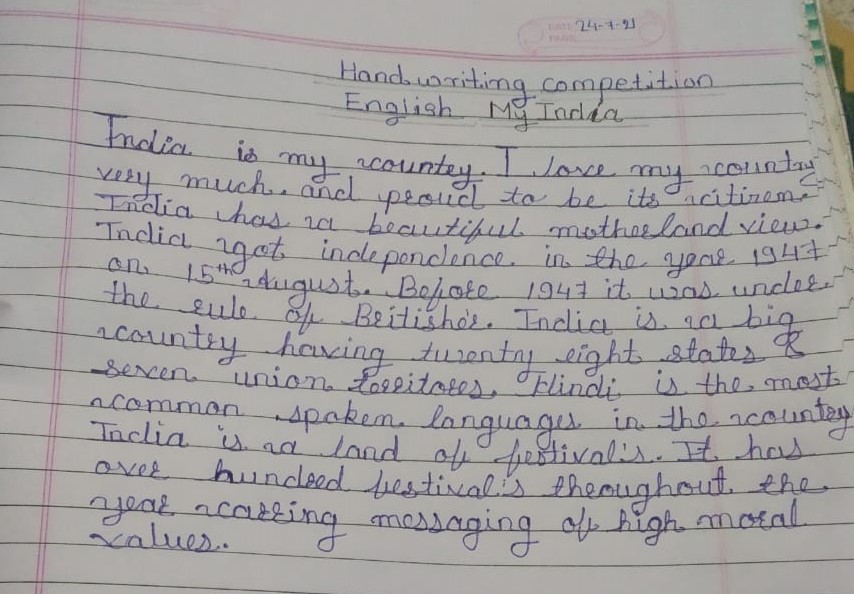 24-7-21
Handwriting competition
English My India
India is my country. I love my country
very much. and proud to be its citizen.
India has a beautiful motherland view.
India got independence in the year 1947
on 15th August. Before 1947 it was under
the rule of British's. India is a big
country having twenty eight states &
seven union territores. Hindi is the most
common spoken languages in the country
India is a land of festival's. It has
over hundred festival's throughout the
year carring messaging of high moral
values.